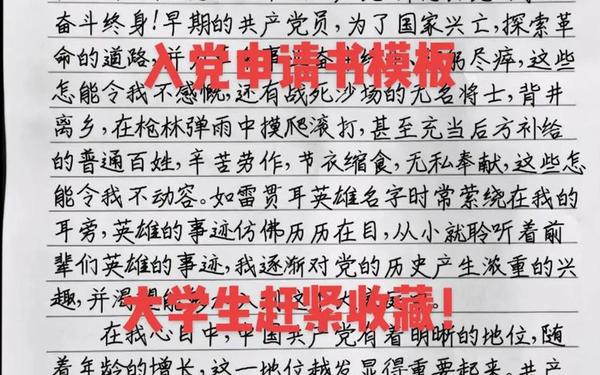 奋斗终身！早期的共产党员，为了国家兴亡，探索革
命的道路，并
尽瘁，这些
入党申请书模板
怎能令我不感慨，还有战死沙场的无名将士，背井
离乡，在枪林弹雨中摸爬滚打，甚至充当后方补给
的普通百姓，辛苦劳作，节衣缩食，无私奉献，这些怎
能令我不动容。如雷贯耳英雄名字时常萦绕在我的
耳旁，英雄的事迹仿佛历历在目，从小就聆听着前
辈们英雄的事迹，我逐渐对党的历史产生浓重的兴
趣，并渴
大学生赶紧收藏！
在我心目中，中国共产党有着明晰的地位，随
着年龄的增长，这一地位越发显得重要起来。共产